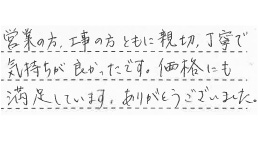 営業の方、工事の方ともに親切、丁寧で
気持ちが良かったです。価格にも
満足しています。ありがとうございました。